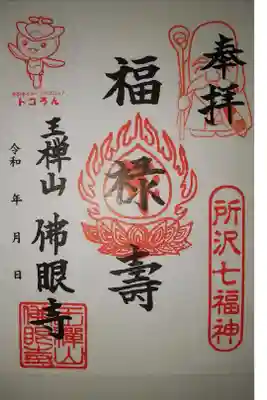 奉拝
所沢七福神
福禄壽
王禅山 佛眼寺
令和 年 月 日
トコろん
王禅山
佛眼寺